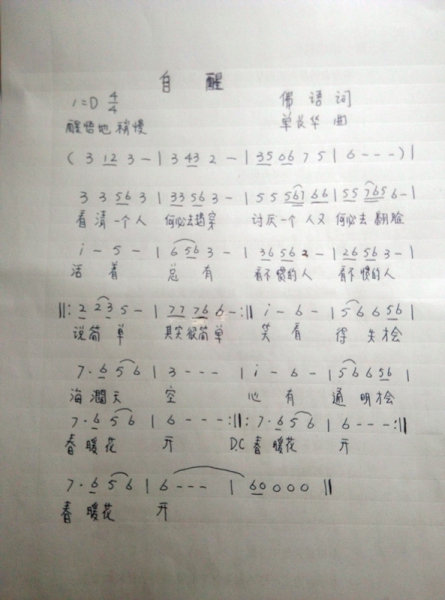 自 醒
1=D 4/4 佛 语 词
醒悟地 稍慢 单长华 曲
( 3 12 3 - | 3 43 2 - | 35 06 7 5 | 6 - - - ) |
3 3 56 3 | 33 56 3 - | 5 5 5 67 66 | 55 7656 - |
看 清一个 人 何必去 讨厌一个 人 又 何必去 翻脸
i - 5 - | 6 56 3 - | 36 56 2 - | 26 56 3 - |
活 着 总 有 看不惯的人 看不惯的人
||: 2 235 - | 77 76 6 - :|| i - 6 - | 5 6 6 56 |
说简 单 其实很简单 笑 看 得 失才会
7 · 6 5 6 | 3 - - - | i - 6 - | 5 6 6 56 |
海 阔天 空 心 有 通 明才会
7 · 6 5 6 | 6 - - - :||: 7 · 6 5 6 | 6 - - - :||
春 暖花 开 D.C 春 暖花 开
7 · 6 5 6 | 6 - - - | 60 0 0 0 ||
春 暖花 开